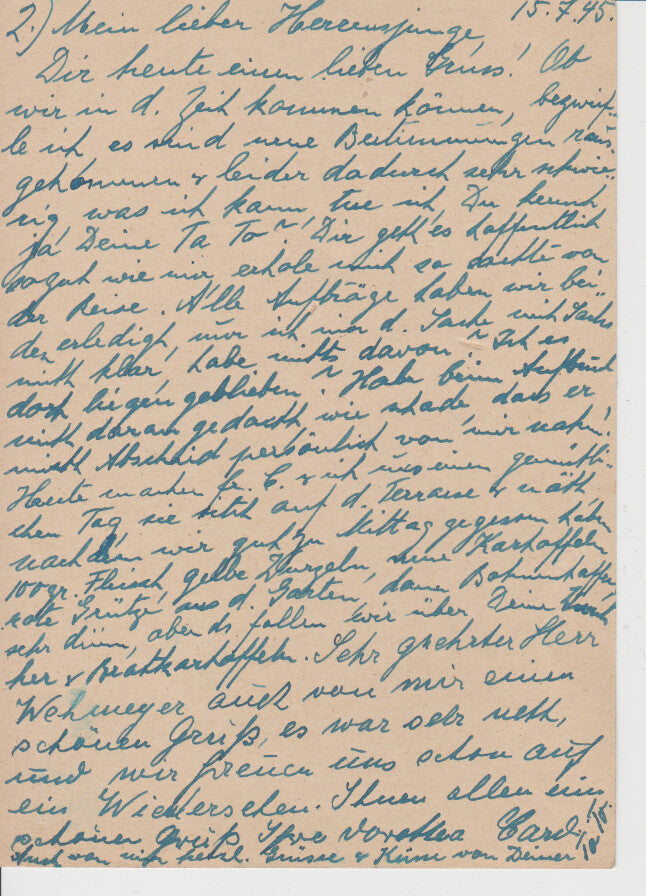 2.) Mein lieber Herzensjunge 15.7.45.
Dir heute einen lieben Gruss! Ob
wir in d. Zeit kommen können, bezweif-
le ich es sind neue Bestimmungen raus-
gekommen & leider dadurch sehr schwie-
rig was ich kann tue ich, Du kennst
ja Deine Ta To Dir geht's hoffentlich
so gut wie mir, erhole mich so sachte von
der Reise. Alle Aufträge haben wir bei
den erledigt, nur ich mir d. Sache mit
nicht klar habe nichts davon. Ist es
dort liegen geblieben? Habe beim Aufbruch
nicht daran gedacht, wie schade dass er
nicht Abschied persönlich von mir nahm.
Heute machen & ich uns einen gemütli-
chen Tag sie sitzt auf d. Terrasse & näht
nachdem wir gut zu Mittag gegessen haben
100gr. Fleisch, gelbe Wurzeln, neue Kartoffeln
rote Grütze aus d. Garten, dann Bohnenkaffee
sehr dünn, abends fallen wir über Deine
her & Bratkartoffeln. Sehr geehrter Herr
Wehmeyer auch von mir einen
schönen Gruß, es war sehr nett,
und wir freuen uns schon auf
ein Wiedersehen. Ihnen allen ein
schönen Gruß Ihre Dorothea
Auch von mir herzl. Grüsse & Küsse von Deiner